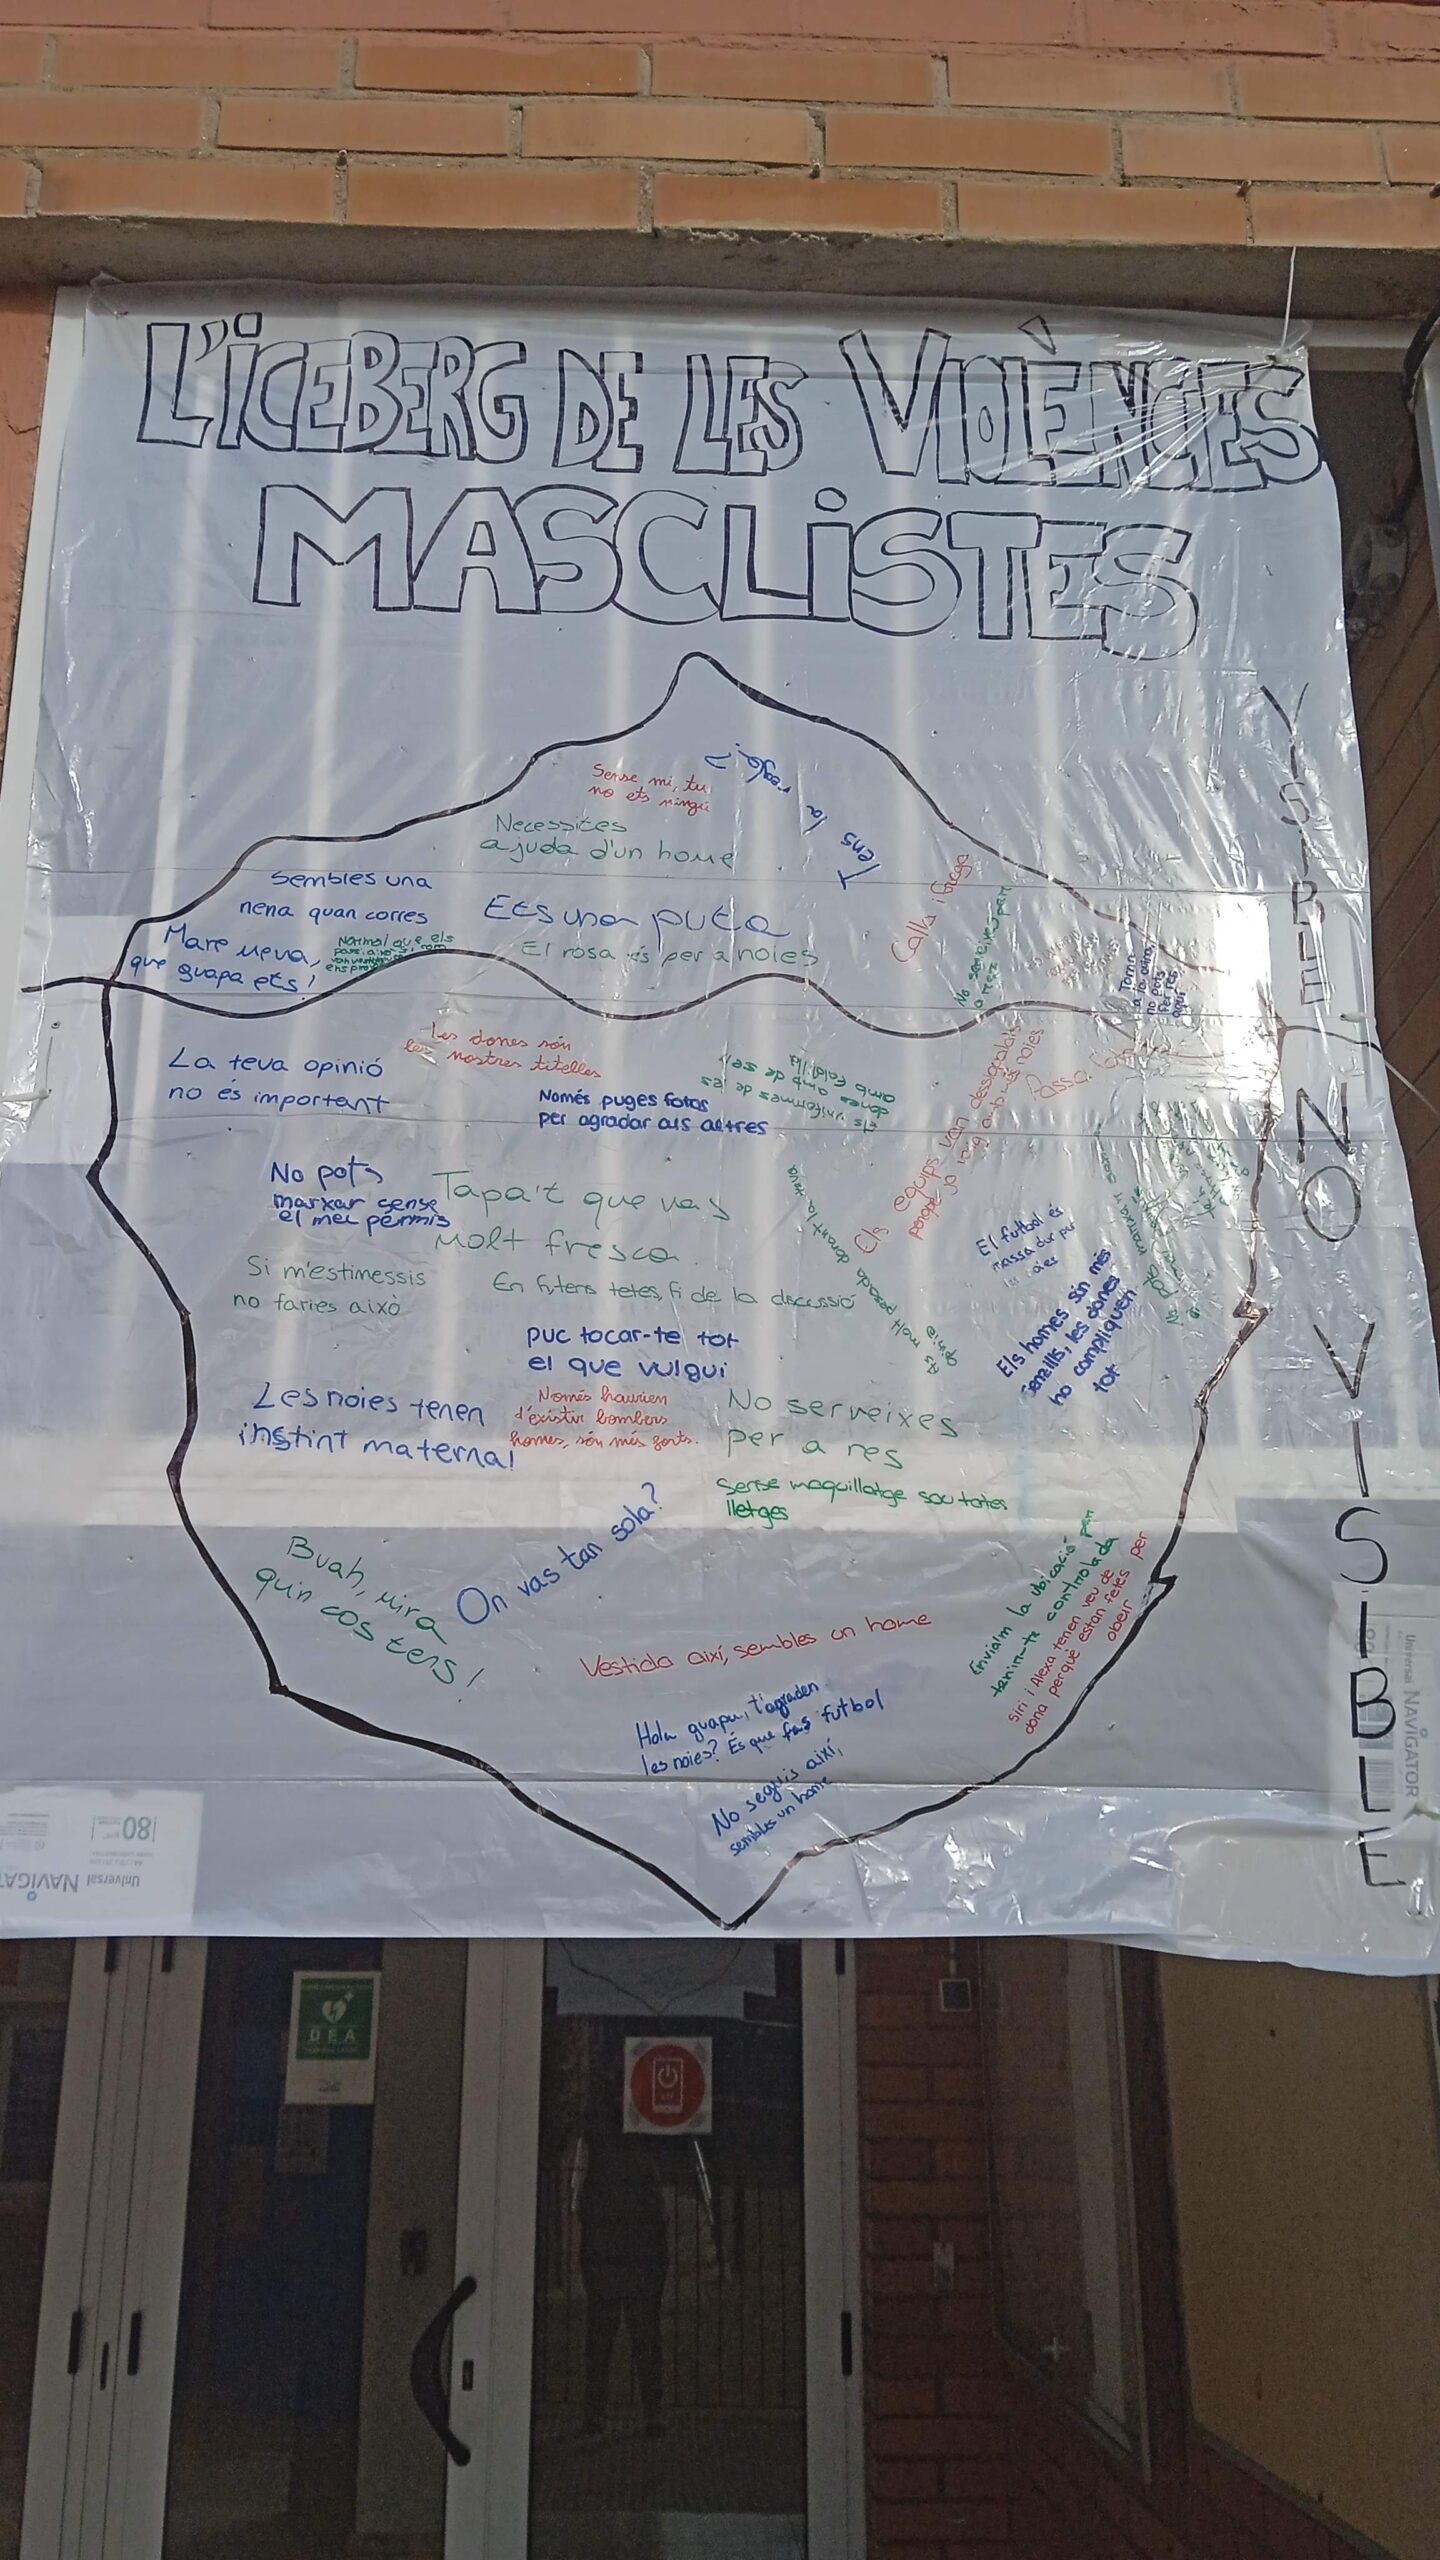 L'ICEBERG DE LES VIOLÈNCIES
MASCLISTES
VISIBLE
NO VISIBLE
Sense mi, tu
no ets ningú
Tens la regla?
Necessites
ajuda d'un home
Sembles una
nena quan corres
Ets una puta
Calla i frega
Mare meva,
que guapa ets!
Normal que els
El rosa és per a noies
No serveixes per
a res
Torna
a la cuina,
no pots
fer res
aquí
Les dones són
les nostres titelles
La teva opinió
no és important
Només puges fotos
per agradar als altres
Els uniformes de les
dones amb de ser
amb faldilla
Els equips van desigualats
perquè jo vaig amb més noies
No pots
marxar sense
el meu permís
Tapa't que vas
molt fresca
El futbol és
massa dur per
les noies
Si m'estimessis
no faries això
En fútens tetes, fi de la discussió
Ets molt pesada durant la teva
Els homes sin més
senzills, les dones
ho compliquen
tot
puc tocar-te tot
el que vulgui
Les noies tenen
instint maternal
Només haurien
d'existir bombers
homes, són més forts.
No serveixes
per a res
Sense maquillatge sou totes
lletges
On vas tan sola?
Buah, mira
quin cos tens!
Envia'm la ubicació per
tenir-te controlada
Siri i Alexa tenen veu de
dona perquè estan fetes per
obeir
Vestida així, sembles un home
Hola guapa, t'agraden
les noies? És que fas futbol
No seguis així,
sembles un home
80
Universal NAVIGATOR
Universal NAVIGAT
DEA